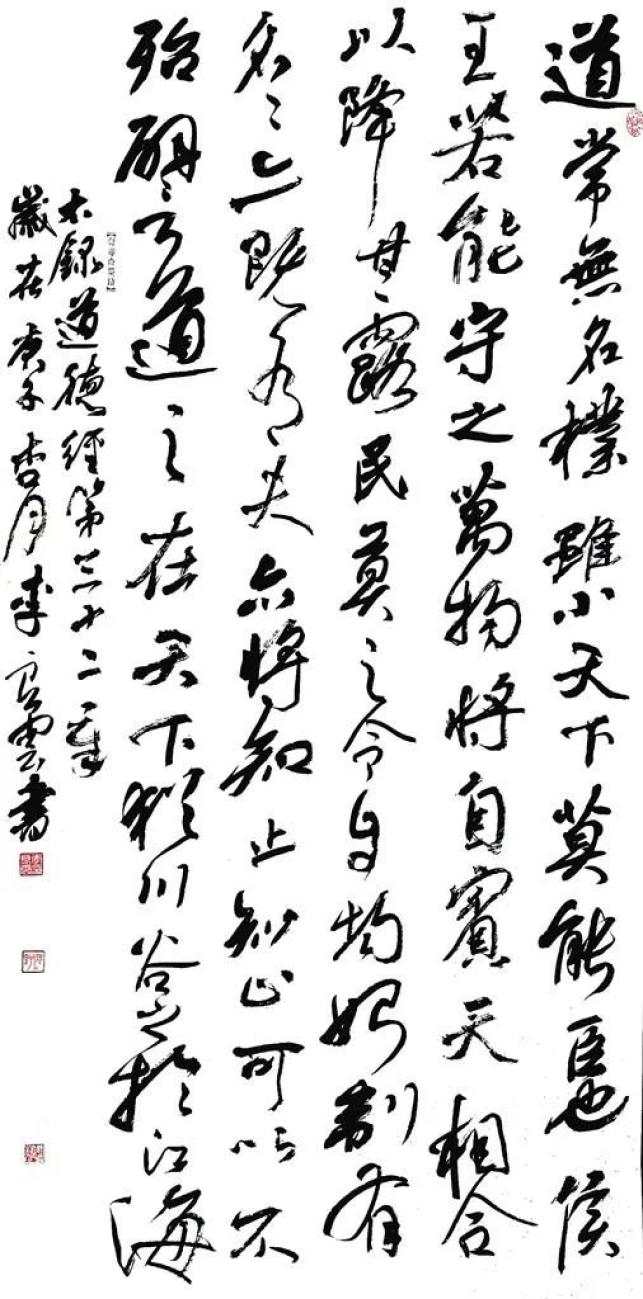 道常無名樸雖小天下莫能臣也侯
王若能守之萬物將自賓天相合
以降甘露民莫之令自均始制有
名〻亦既有夫亦將知止知止可以不
殆譬道之在天下猶川谷之於江海
右錄道德經第三十二章
歲在庚子杏月李良雲書